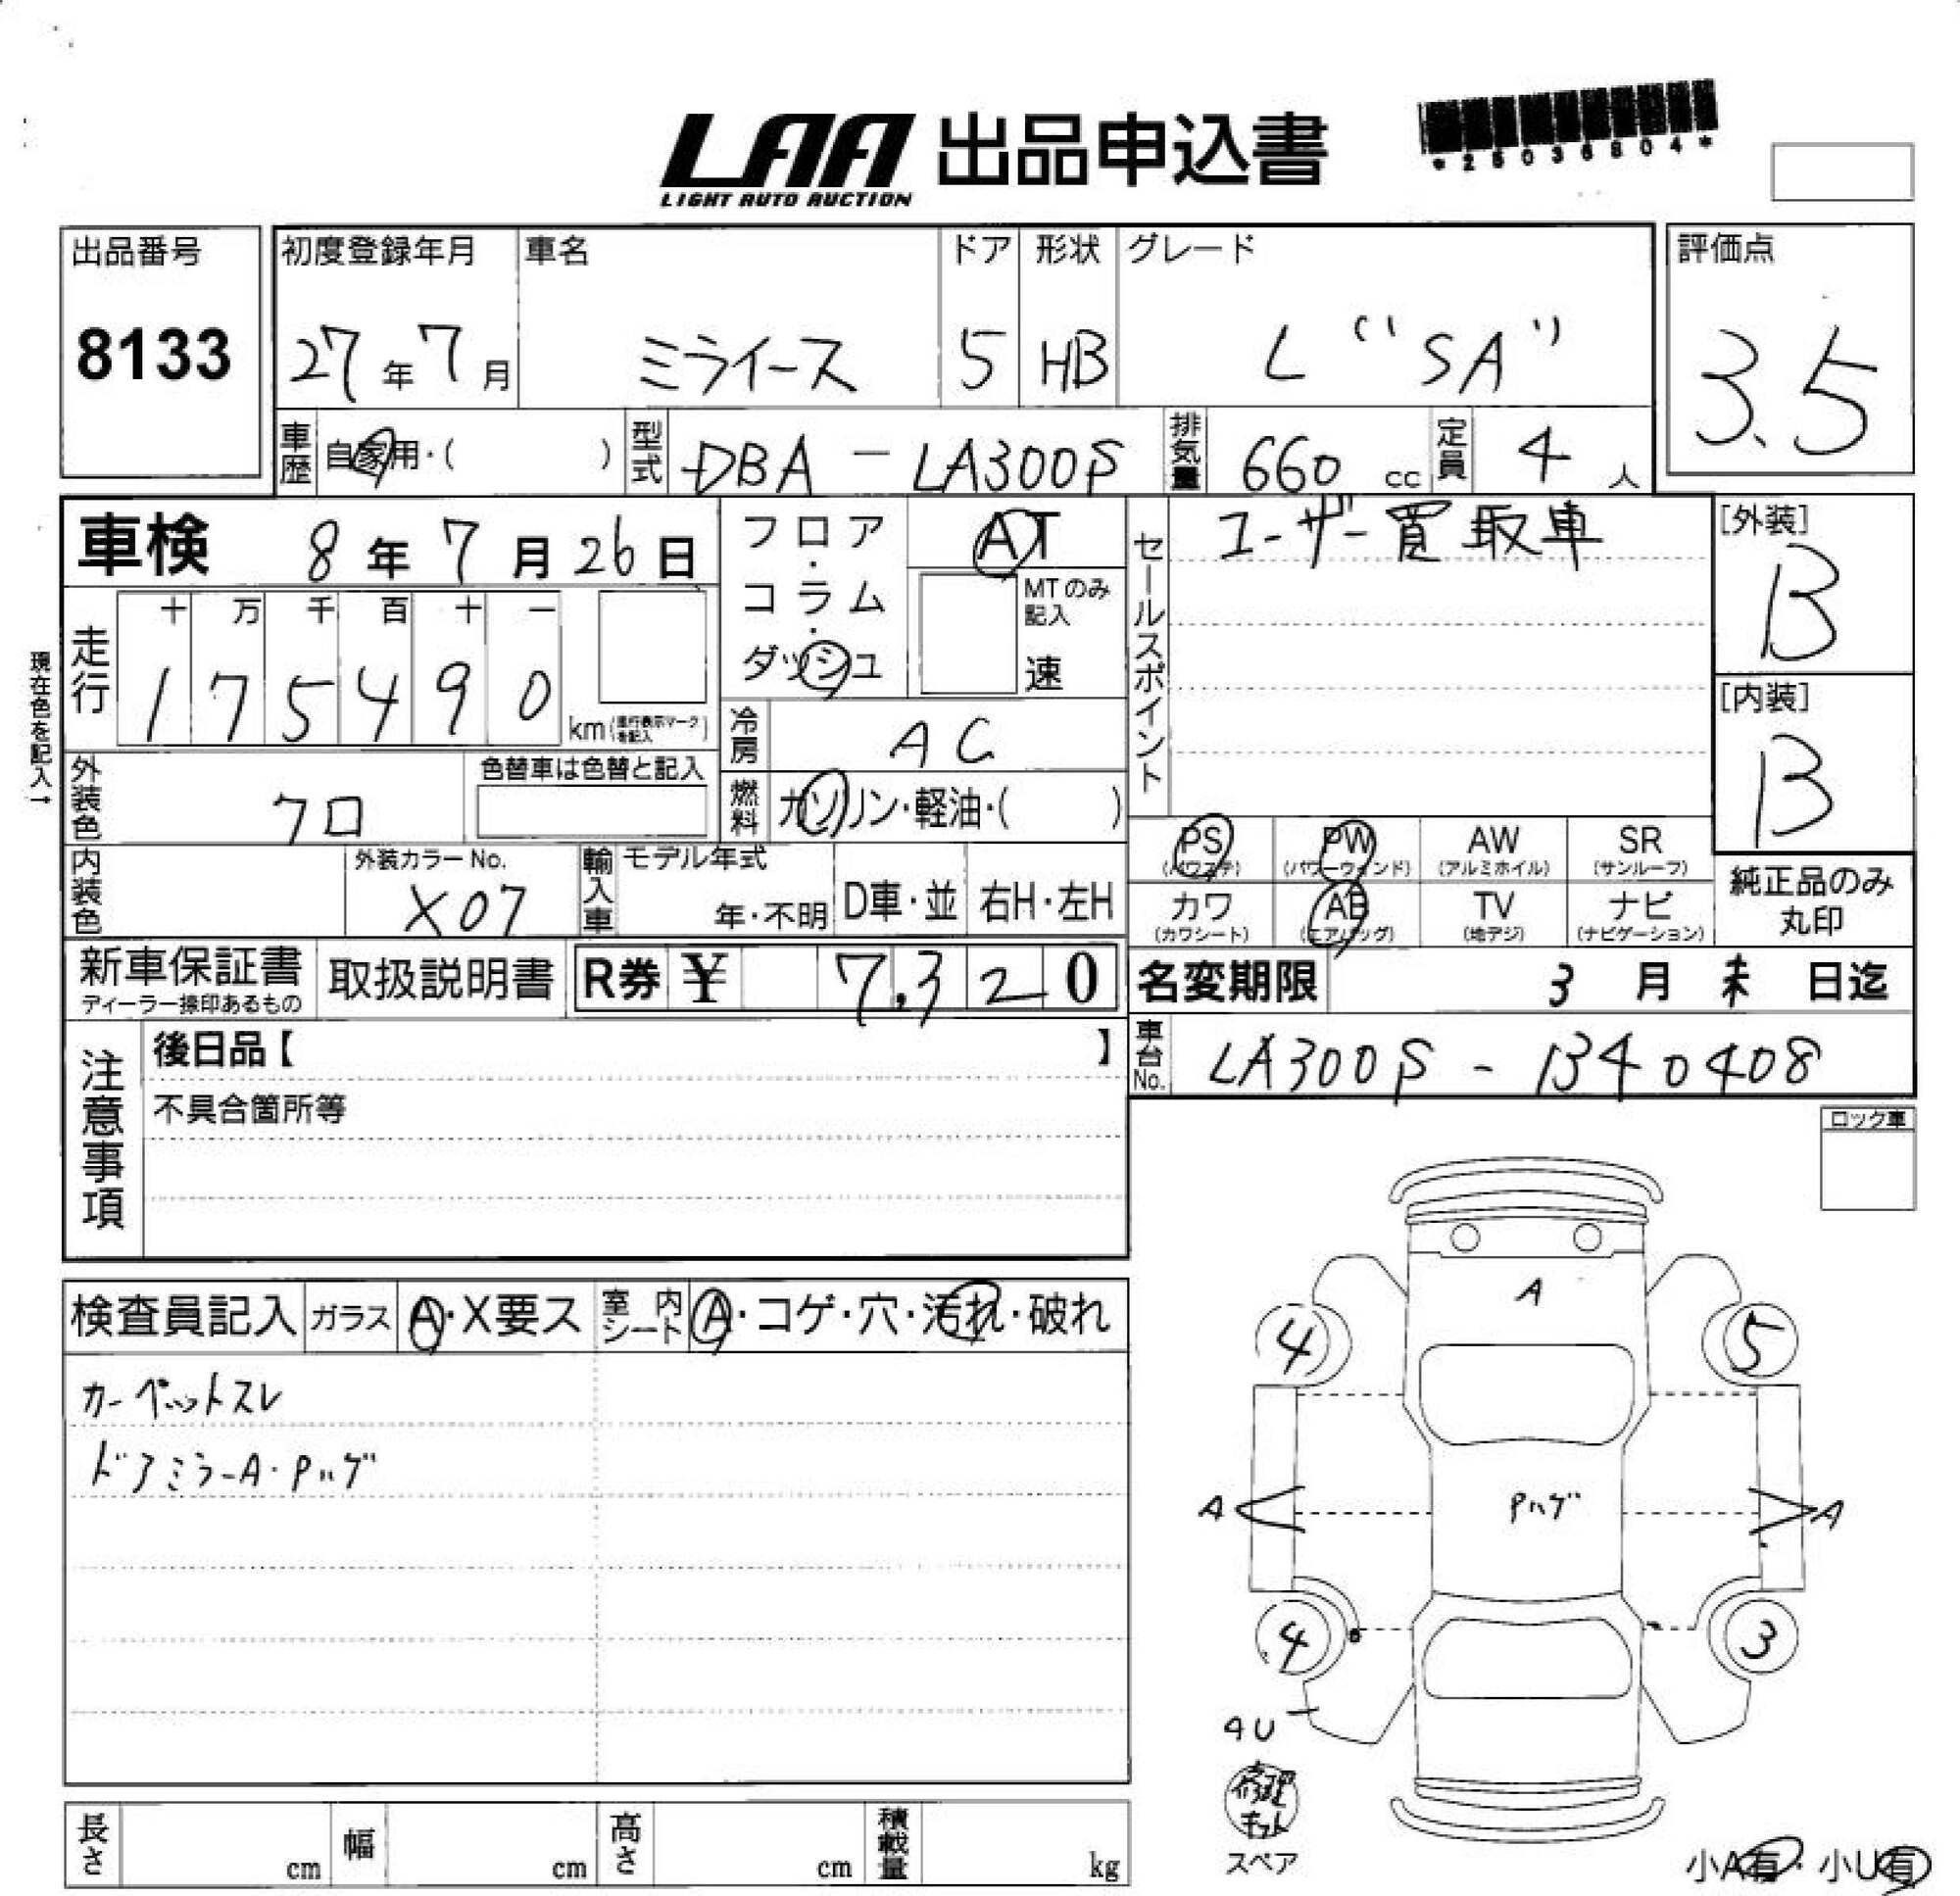 LAA 出品申込書
LIGHT AUTO AUCTION
*25036804*
出品番号
8133
初度登録年月
27年7月
車名
ミライース
ドア
5
形状
HB
グレード
L "SA"
評価点
3.5
車歴 自家用・( )
型式 DBA-LA300S
排気量 660 cc
定員 4 人
車検 8年7月26日
フロア・コラム・ダッシュ
AT
MTのみ記入
速
セールスポイント
ユーザー買取車
[外装]
B
[内装]
B
現在色を記入→
走行
十 万 千 百 十 一
1 7 5 4 9 0
km(走行表示マークを記入)
冷房 AC
外装色 クロ
色替車は色替と記入
燃料 ガソリン・軽油・( )
内装色
外装カラーNo.
X07
輸入車
モデル年式
年・不明
D車・並
右H・左H
PS
(パワステ)
PW
(パワーウィンド)
AW
(アルミホイル)
SR
(サンルーフ)
カワ
(カワシート)
AB
(エアバッグ)
TV
(地デジ)
ナビ
(ナビゲーション)
純正品のみ
丸印
新車保証書
ディーラー捺印あるもの
取扱説明書
R券 ¥ 7,320
名変期限 3月末日迄
車台No. LA300S-1340408
注意事項
後日品【 】
不具合箇所等
ロック車
検査員記入
ガラス A・X要ス
室内シート A・コゲ・穴・汚れ・破れ
カーペットスレ
ドアミラーA・Pハゲ
A
4
5
A
Pハゲ
A
4
3
修理キット
スペア
長さ cm
幅 cm
高さ cm
積載量 kg
小A有・小U有